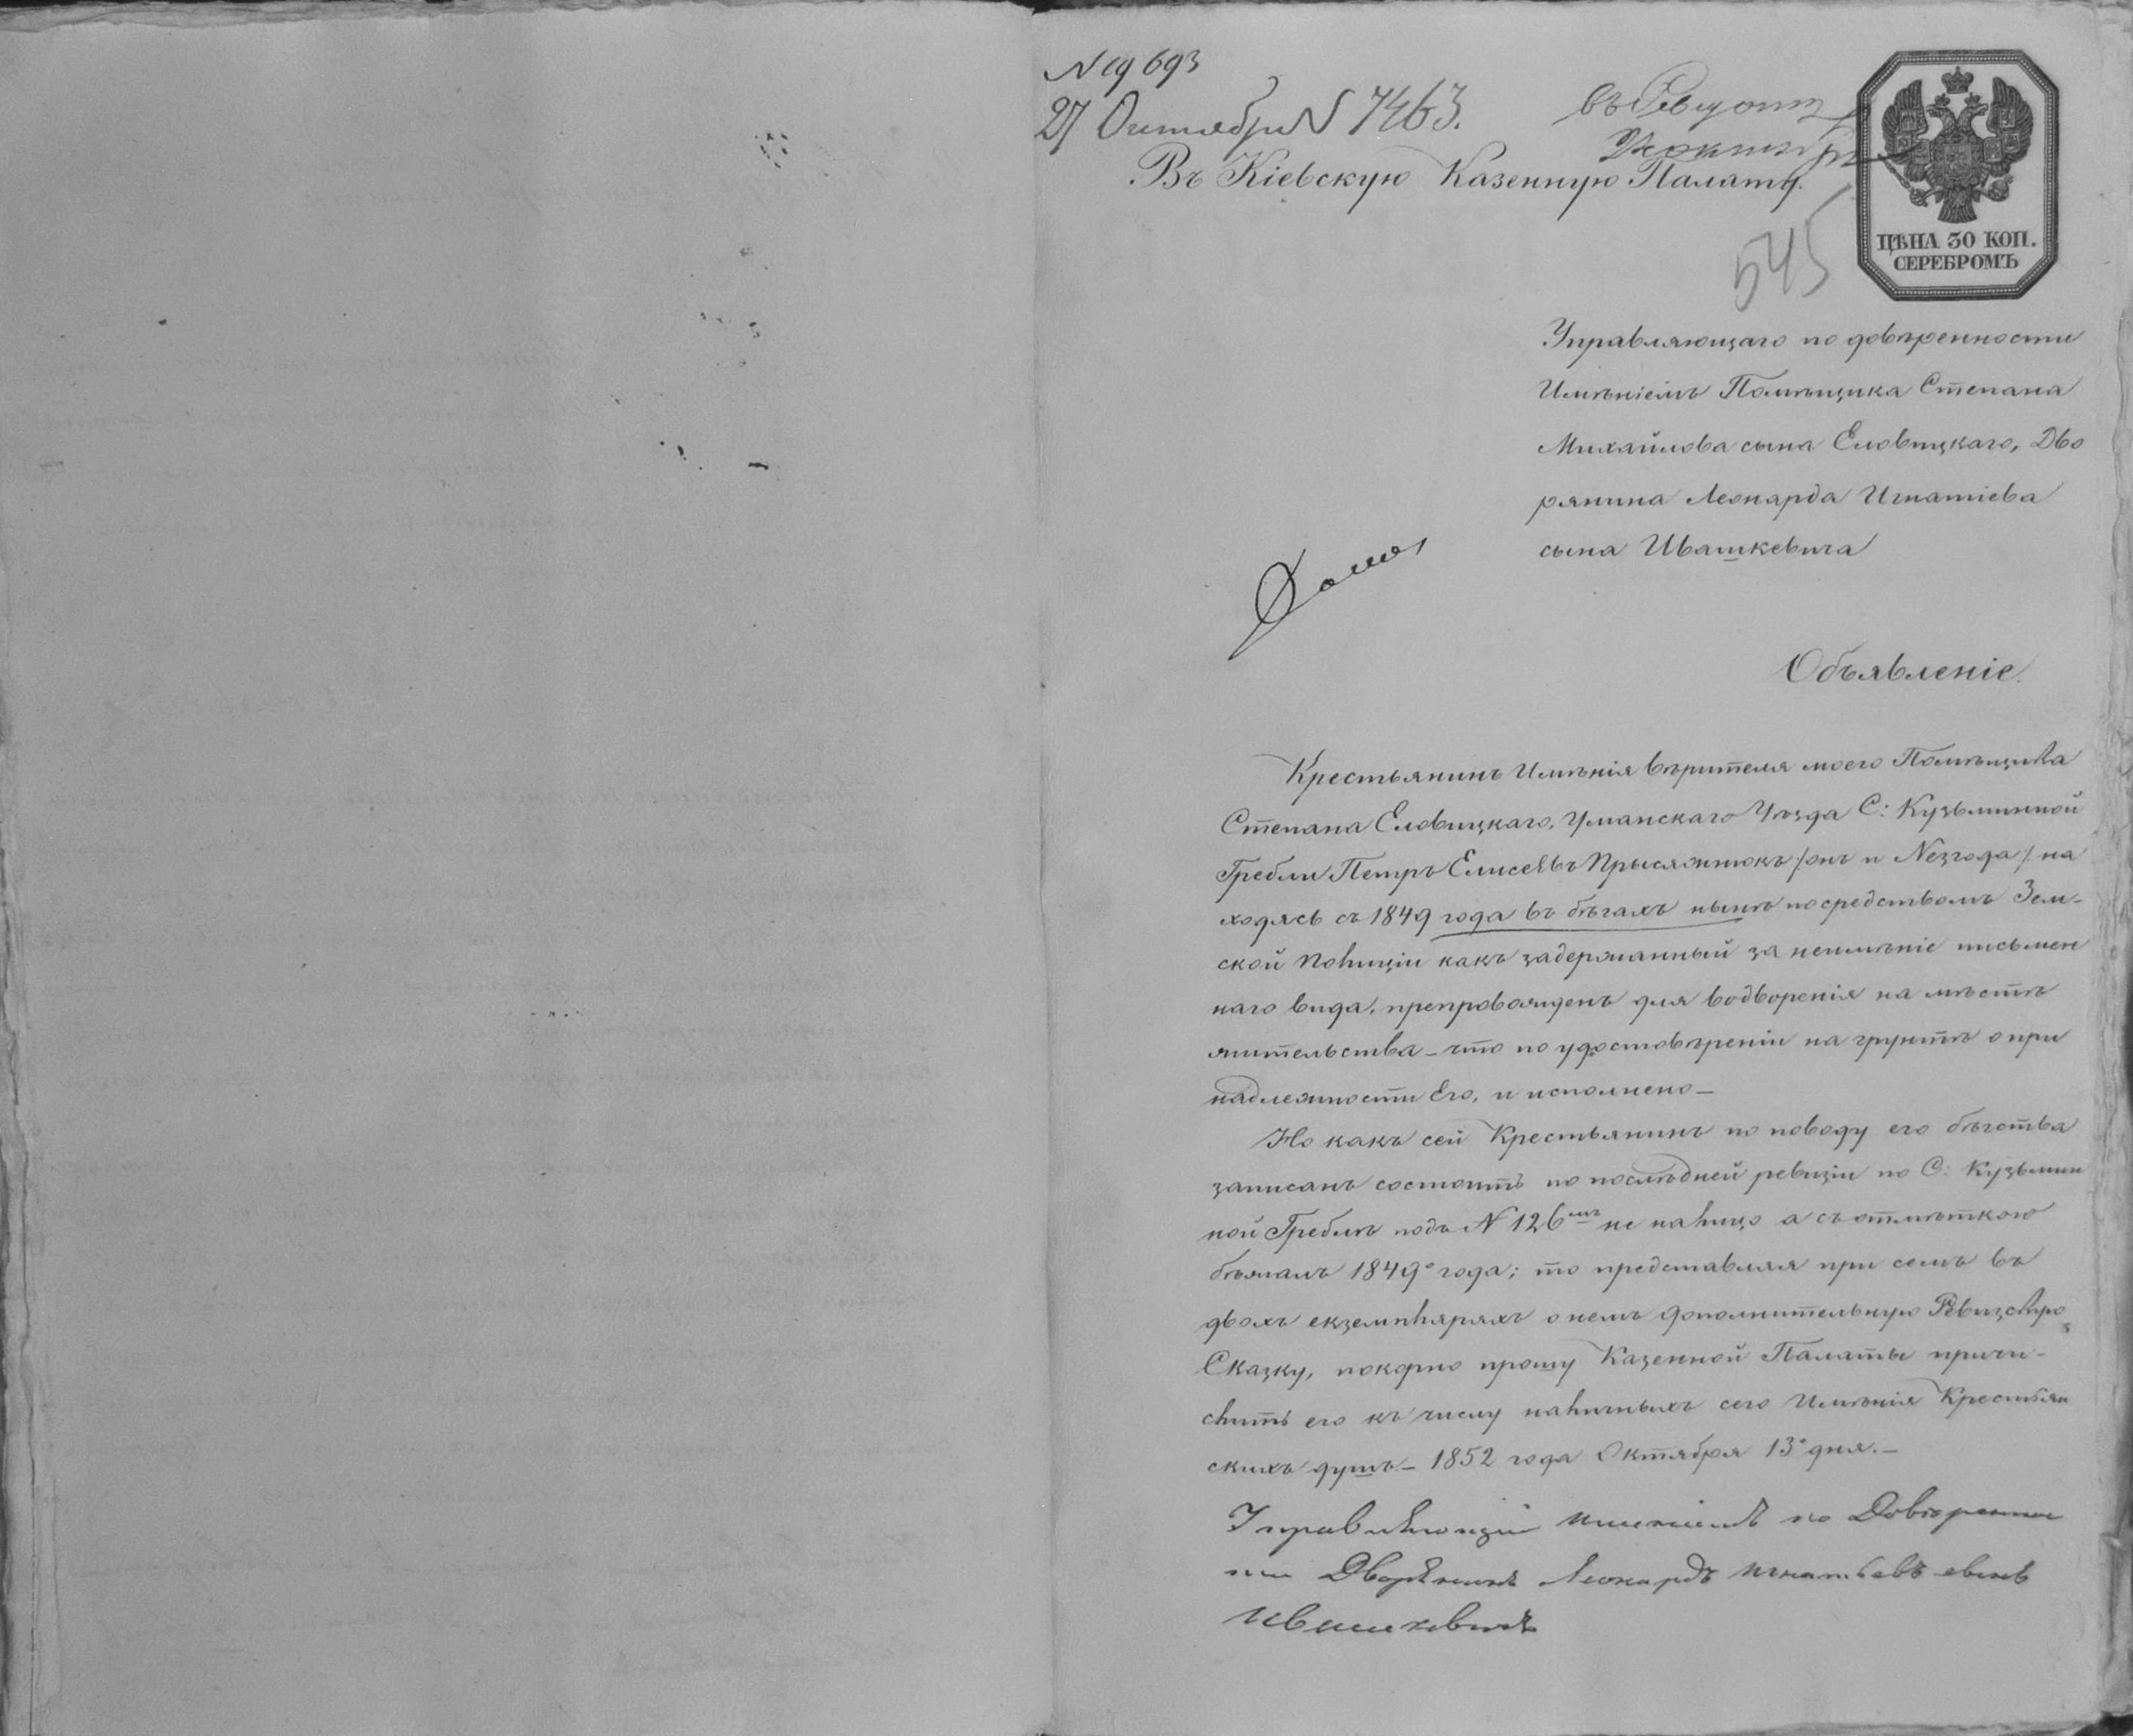 N 19693
27 Октября N 7463.
Въ Кіевскую Казенную Палату.
545
ЦѢНА 30 КОП.
СЕРЕБРОМЪ
Управляющаго по довѣренности
Имѣніемъ Помѣщика Степана
Михайлова сына Еловицкаго, Дво
рянина Леонарда Игнатіева
сына Ивашкевича
Объявленіе.
Крестьянинъ Имѣнія вѣрителя моего Помѣщика
Степана Еловицкаго, Уманскаго Уѣзда С: Кузьминной
Гребли Петръ Елисѣевъ Прысяжнюкъ /онъ и Незгода/ на
ходясь съ 1849 года въ бѣгахъ нынѣ посредствомъ Зем-
ской Полиціи какъ задержанный за неимѣніе письмен
наго вида, препровожденъ для водворенія на мѣстѣ
жительства – что по удостовѣреніи на грунтѣ о при
надлежности Его, и исполнено –
Но какъ сей Крестьянинъ по поводу его бѣгства
записанъ состоитъ по послѣдней ревизіи по С: Кузьмин
ной Греблѣ подъ N 126мъ не налицо а съ отмѣткою
бѣжалъ 1849° года; то представляя при семъ въ
двохъ екземплярахъ о немъ дополнительную Ревизскую
Сказку, покорно прошу Казенной Палаты причи-
слить его къ числу наличныхъ сего Имѣнія Крестьян
скихъ душъ. – 1852 года Октября 13° дня. –
Управляющій имениемъ по Довѣренно
сти Дворянинъ Леонардъ Игнатьевъ сынъ
Ивашкевичъ